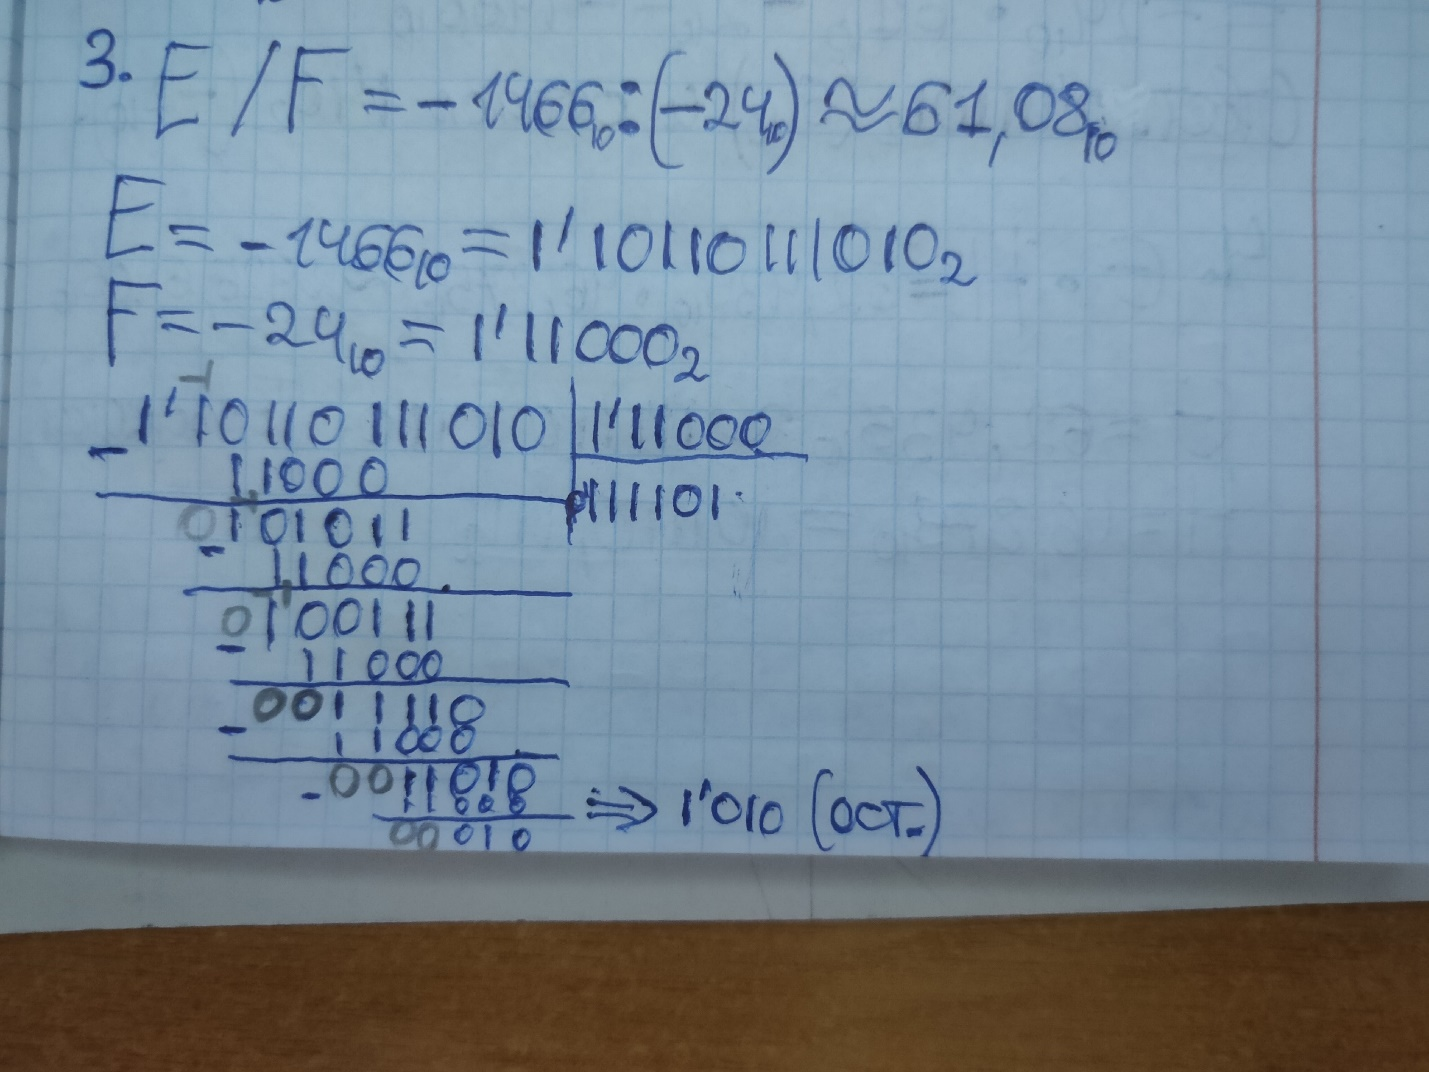 3. E/F = -1466₁₀:(-24₁₀) ≈ 61,08₁₀
E = -1466₁₀ = 1'10110111010₂
F = -24₁₀ = 1'11000₂
- 1'10110111010 | 1'11000
11000
0101011 | 0'111101
- 11000
0100111
- 11000
0011110
- 11000
0011010
- 11000 ⇒ 1'010 (ост.)
00010